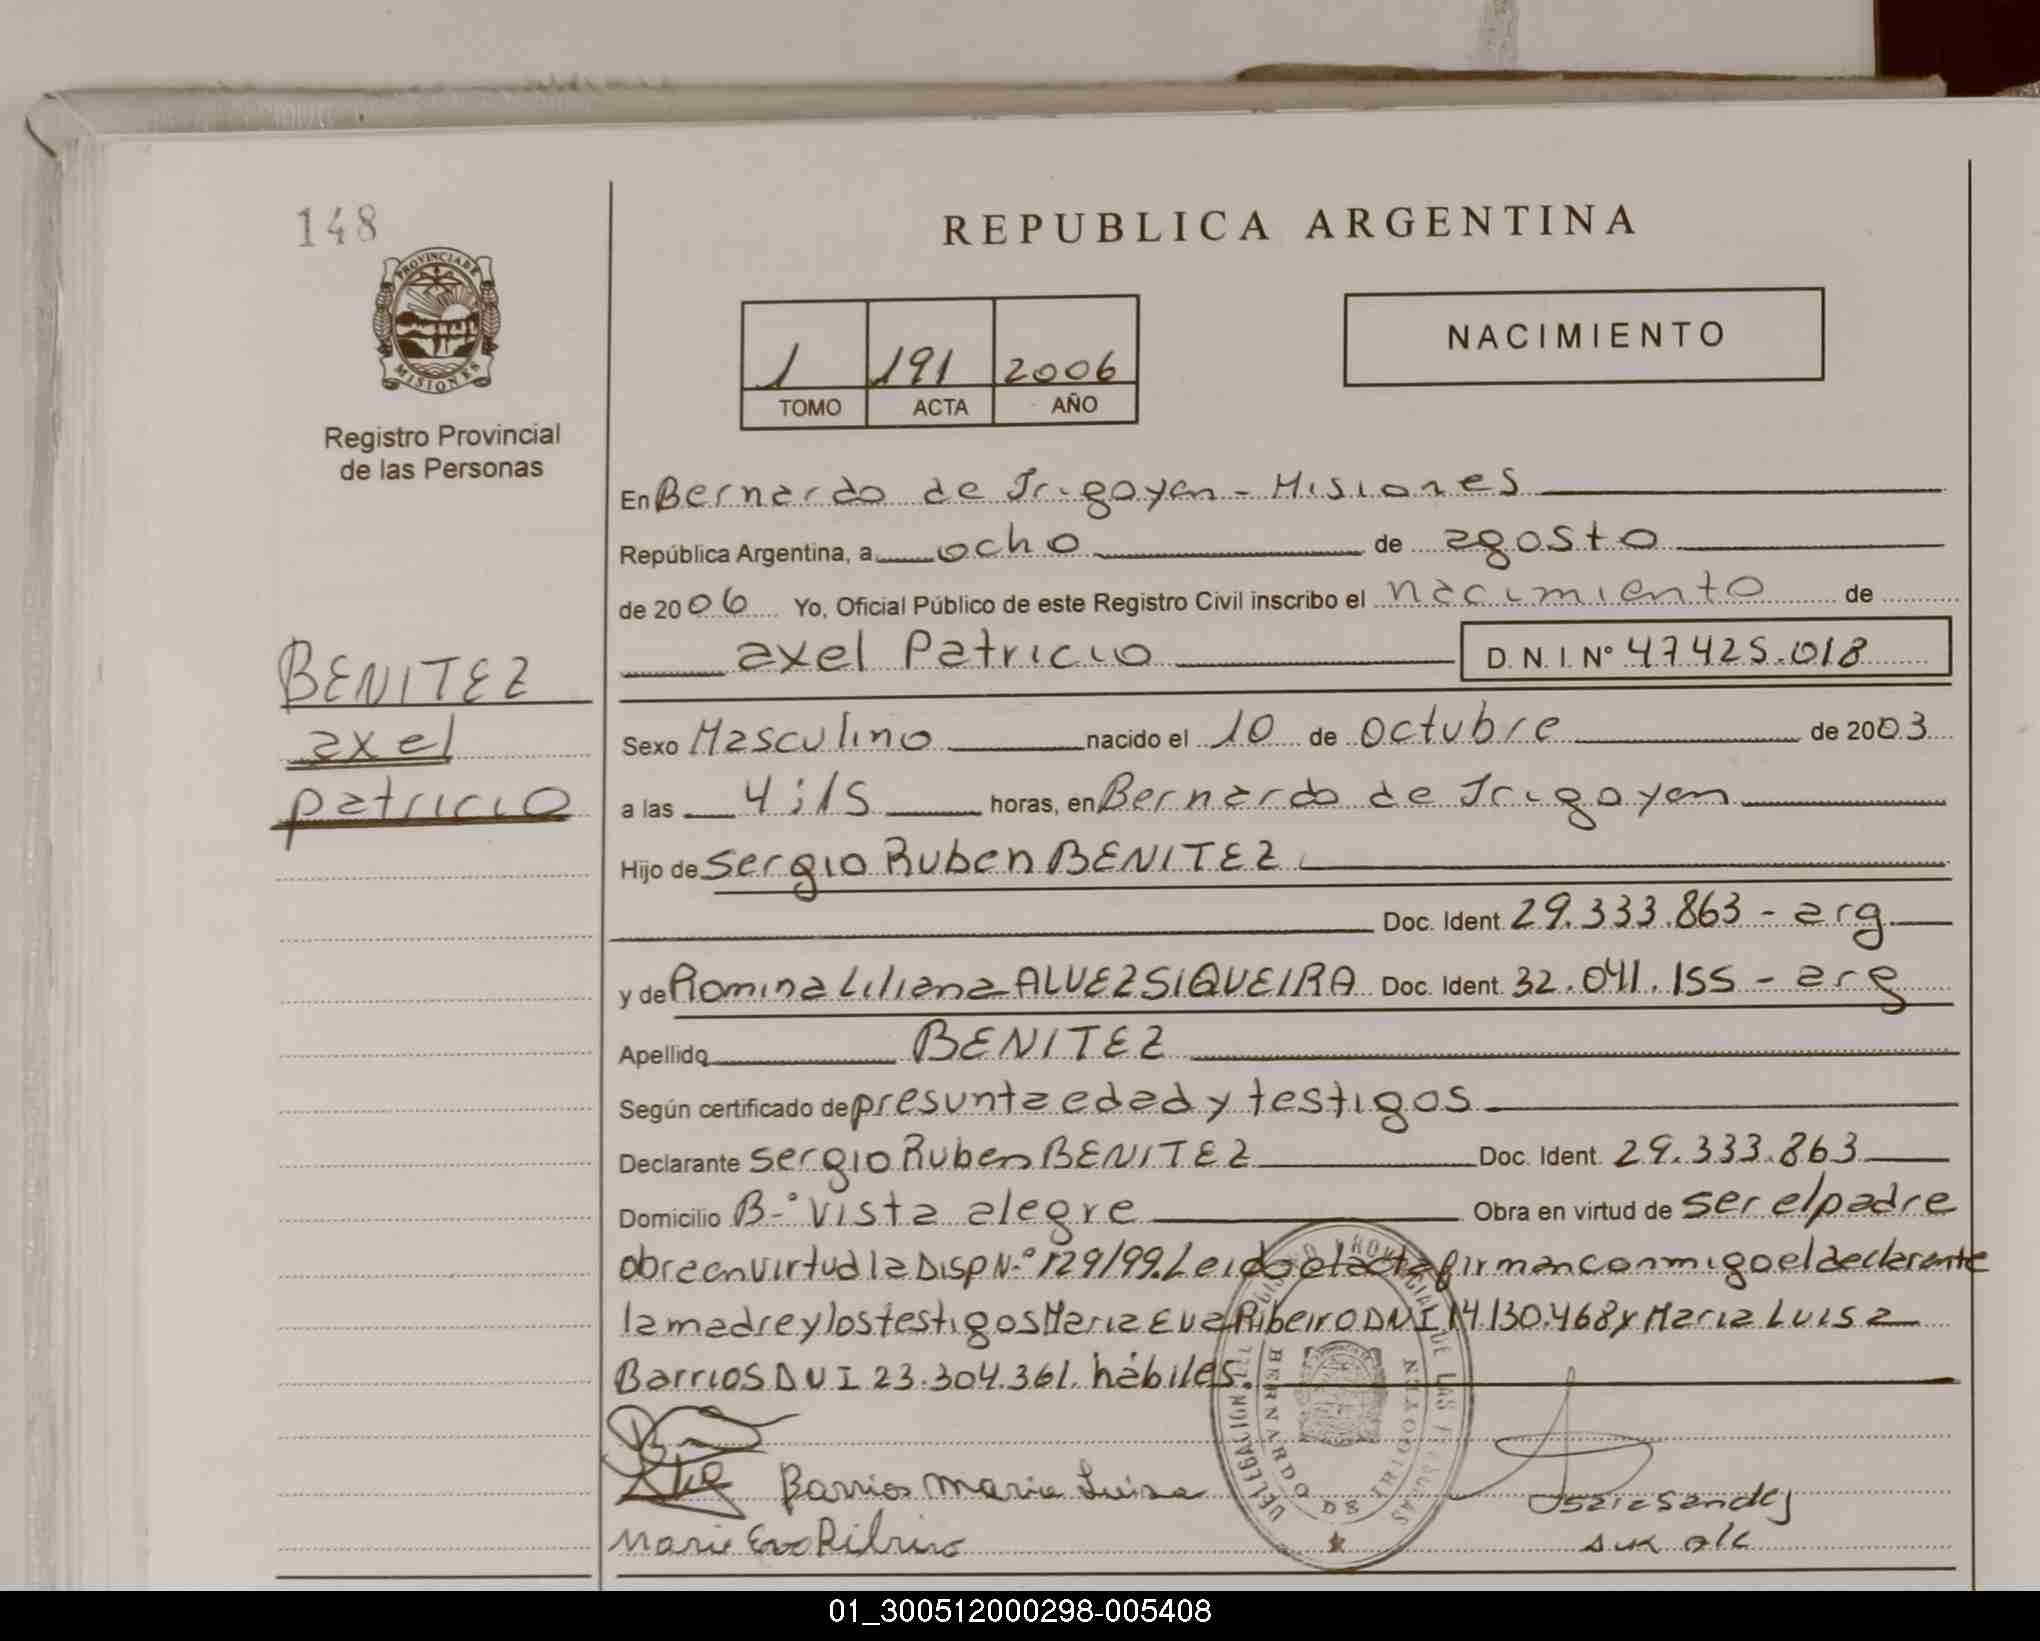 148
REPUBLICA ARGENTINA
PROVINCIA DE
MISIONES
Registro Provincial
de las Personas
1 191 2006
TOMO ACTA AÑO
NACIMIENTO
En Bernardo de Irigoyen - Misiones
República Argentina, a ocho de agosto
de 2006 Yo, Oficial Público de este Registro Civil inscribo el nacimiento de
axel Patricio D.N.I. Nº 47425.018
BENITEZ
axel
patricio
Sexo Masculino nacido el 10 de octubre de 2003
a las 4:15 horas, en Bernardo de Irigoyen
Hijo de Sergio Ruben BENITEZ
Doc. Ident. 29.333.863 - arg
y de Romina Liliana ALVEZ SIQUEIRA Doc. Ident. 32.041.155 - arg
Apellido BENITEZ
Según certificado de presunta edad y testigos
Declarante Sergio Ruben BENITEZ Doc. Ident. 29.333.863
Domicilio B-º Vista alegre Obra en virtud de ser el padre
obra en virtud la Disp N-º 129/99. Leido el acta firman conmigo el declarante
la madre y los testigos Maria Eva Ribeiro DNI 14.130.468 y Maria Luisa
Barrios DNI 23.304.361. hábiles.
DELEGACION REGISTRO PROVINCIAL DE LAS PERSONAS
BERNARDO DE IRIGOYEN
Barrios Maria Luisa
Maria Eva Ribeiro
01_300512000298-005408